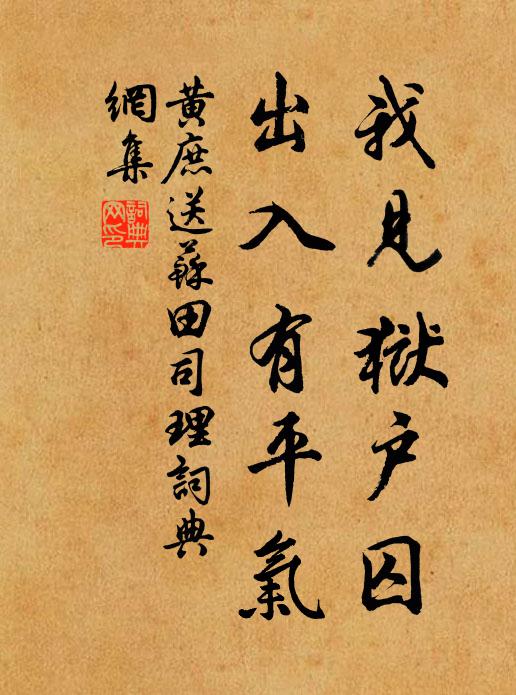 我見獄戶囚
出入有平氣
黃庶送蘇田司理詞典
網集
詞典網印